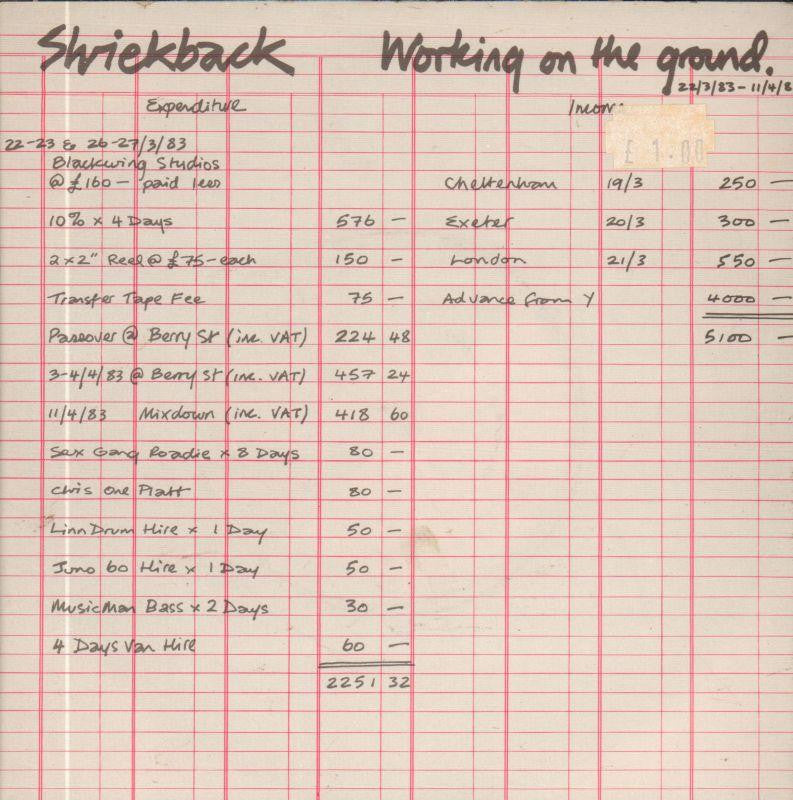 Shriekback Working on the ground.
22/3/83 – 11/4/8
Expenditure
£ 1.00
22-23 & 26-27/3/83
Blackwing Studios
@ £160 – paid less Cheltenham 19/3 250 —
10% x 4 Days 576 — Exeter 20/3 300 —
2 x 2" Reel @ £75 – each 150 — London 21/3 550 —
Transfer Tape Fee 75 — Advance from Y 4000 —
Passover @ Berry St (inc. VAT) 224 48 5100 —
3-4/4/83 @ Berry St (inc. VAT) 457 24
11/4/83 Mixdown (inc. VAT) 418 60
Sex Gang Roadie x 8 Days 80 —
Chris One Platt 80 —
Linn Drum Hire x 1 Day 50 —
Juno 60 Hire x 1 Day 50 —
MusicMan Bass x 2 Days 30 —
4 Days Van Hire 60 —
2251 32